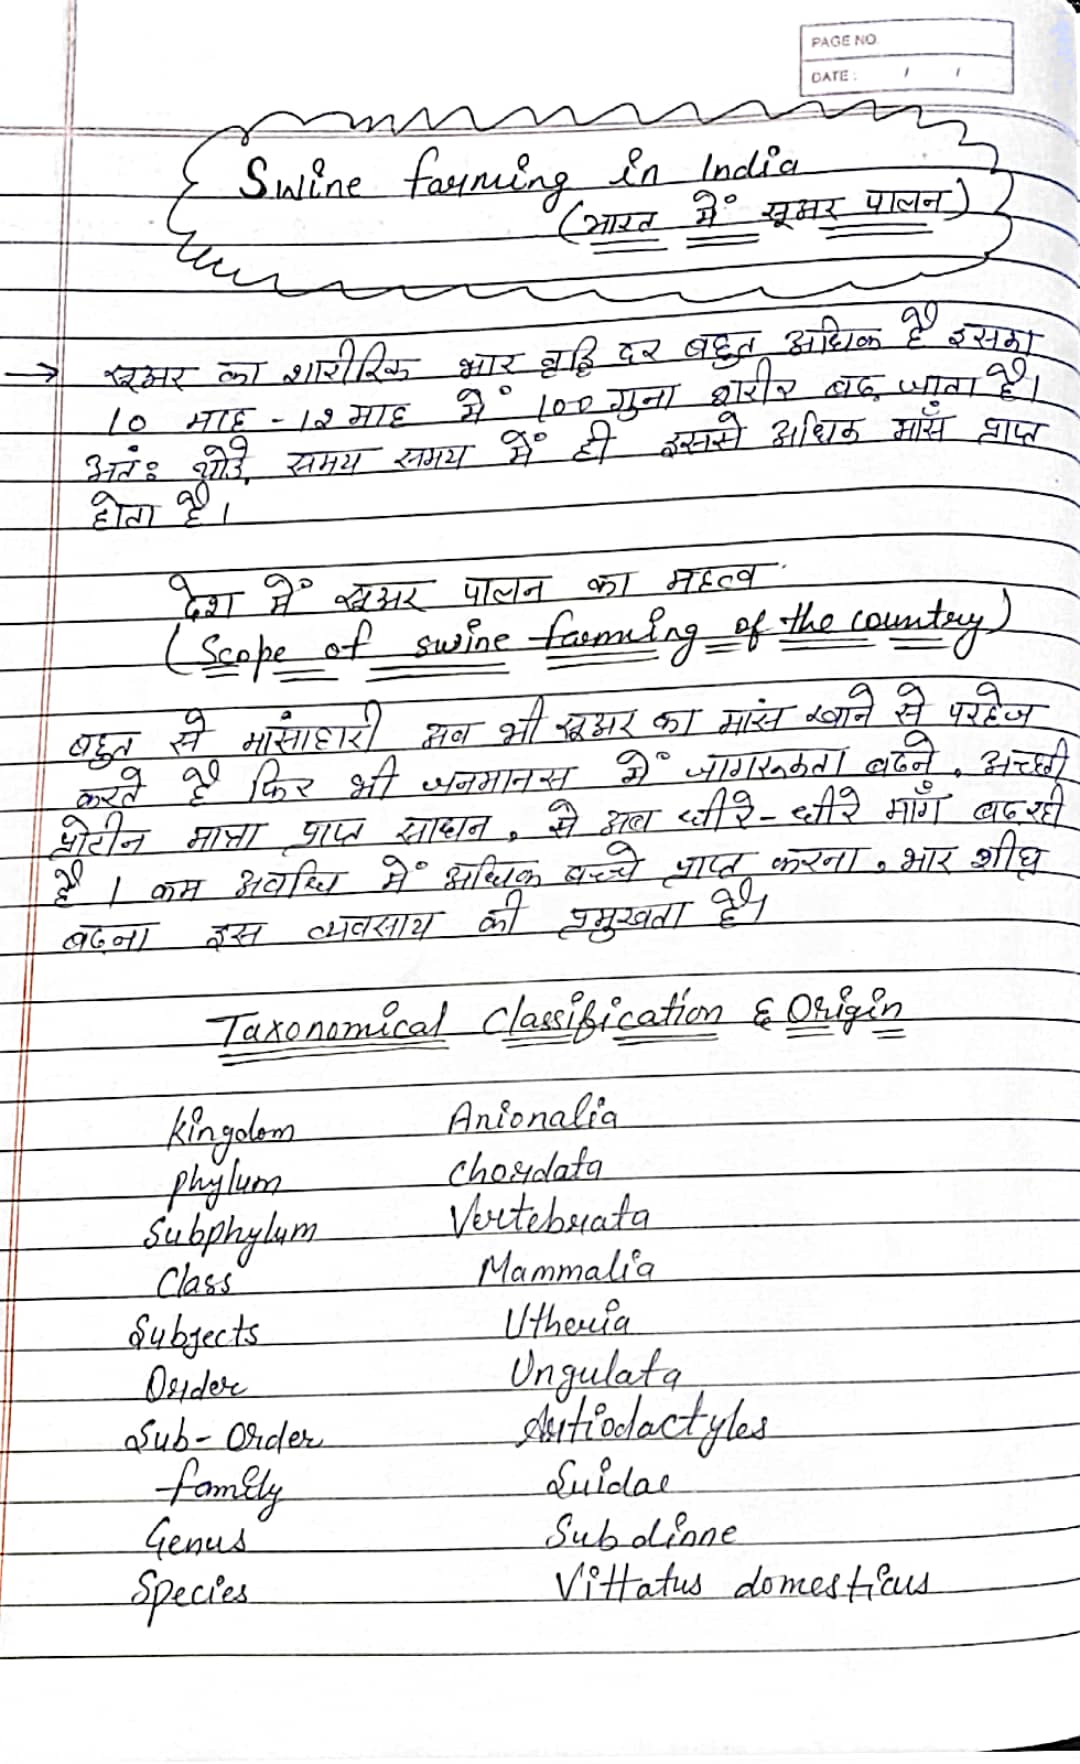 PAGE NO.
DATE: / /
Swine farming in India
(भारत में सूअर पालन)
→ सूअर का शारीरिक भार वृद्धि दर बहुत अधिक है इसका
10 माह - 12 माह में 100 गुना शरीर बढ़ जाता है।
अतः थोड़े समय समय में ही इससे अधिक माँस प्राप्त
होता है।
देश में सूअर पालन का महत्व
(Scope of swine farming of the country)
बहुत से मांसाहारी अब भी सूअर का मांस खाने से परहेज
करते है फिर भी जनमानस में जागरूकता बढने, अच्छी
प्रोटीन मात्रा प्राप्त साधन, से अब धीरे-धीरे माँग बढ रही
है। कम अवधि में अधिक बच्चे प्राप्त करना, भार शीघ्र
बढना इस व्यवसाय की प्रमुखता है।
Taxonomical Classification & Origin
Kingdom Anionalia
phylum Chordata
Subphylum Vertebrata
Class Mammalia
Subjects Utheria
Order Ungulata
Sub-Order Artiodactyles
family Suidae
Genus Subdinne
Species Vittatus domesticus